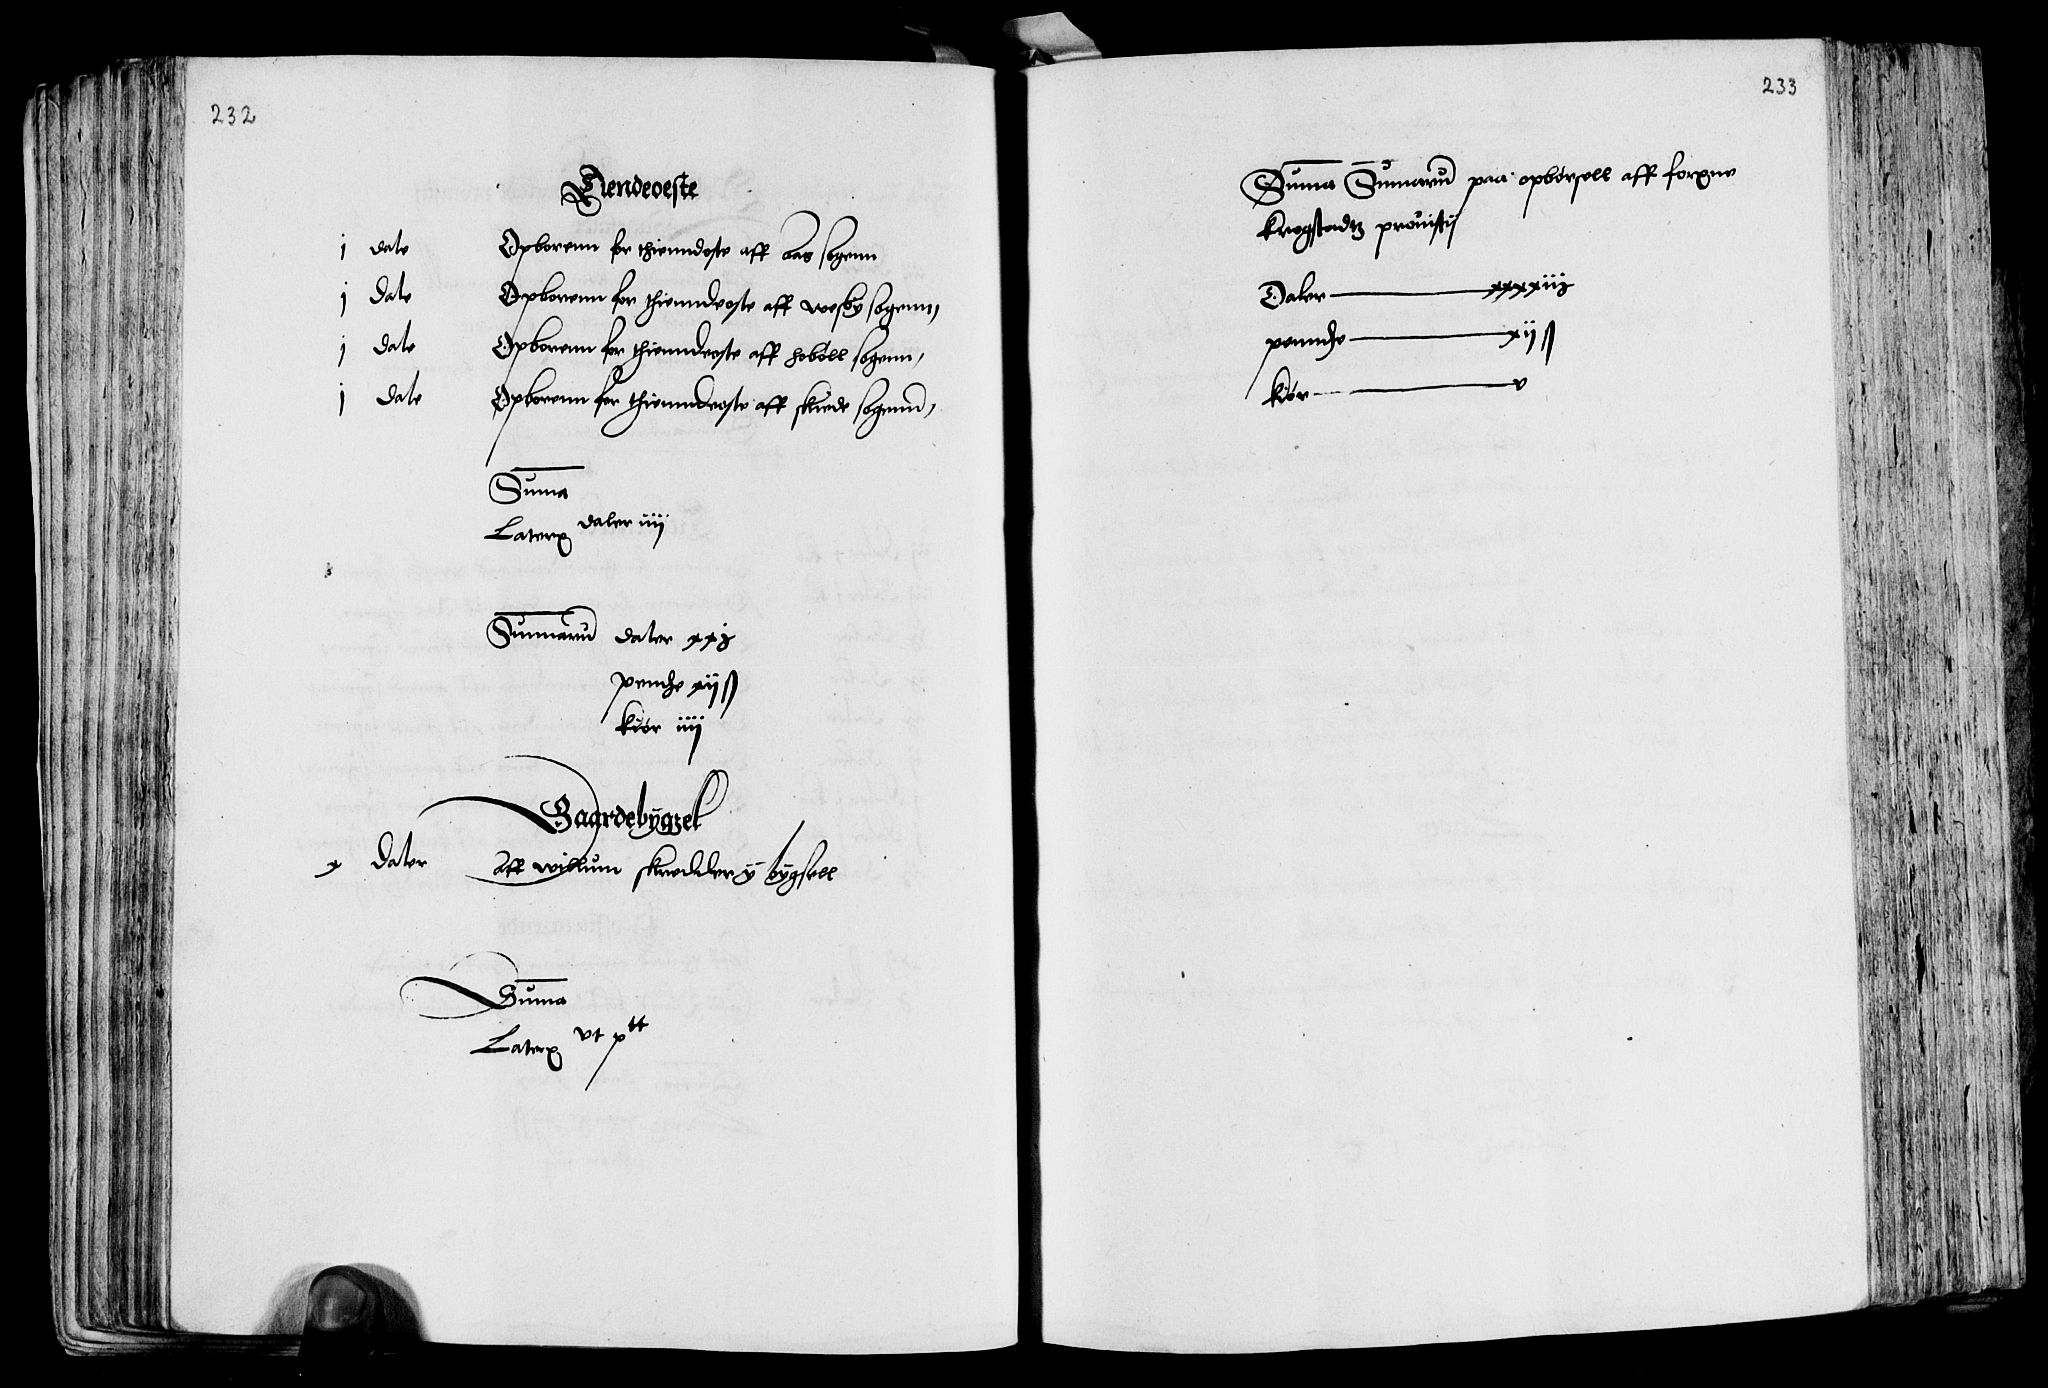 232
Tiendeoeste
j dale Opborenn for thienndoste aff aas sogenn
j dale Opborenn for thienndeoste aff wesby sogenn,
j dale Opborenn for thienndeoste aff hobóll sogenn,
j dale Opborenn for thienndeoste aff skiede sogenn,
Suma
Laterꝭ daler iiij
Sumarum daler xxj
pendge xij ß
kiór iiij
Gaardebygzel
x daler Aff willum skredder y bygsell
Suma
Laterꝭ vt ptt
233
Suma Sumarum paa opbórsell aff forne
krogstadtz prouistij
Daler xxxxiij
penndge xij ß
kiór v